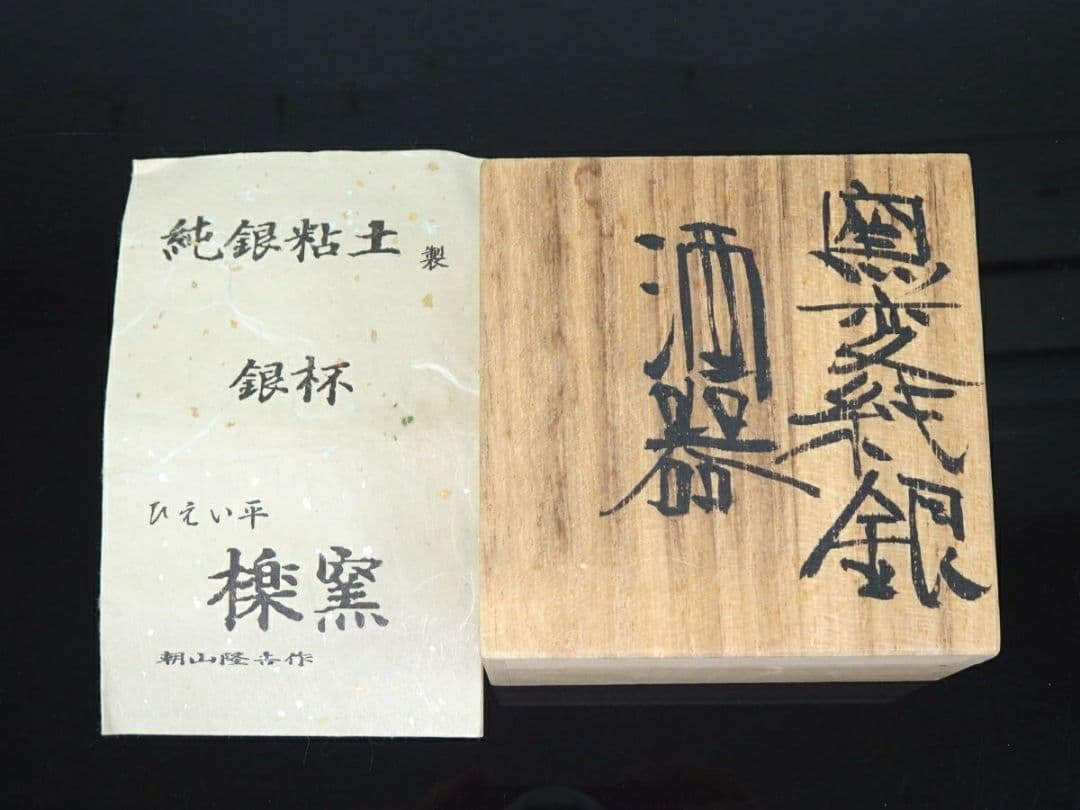 純銀粘土製
銀杯
ひえい平
檪窯
朝山隆吉作
窯変純銀
酒器